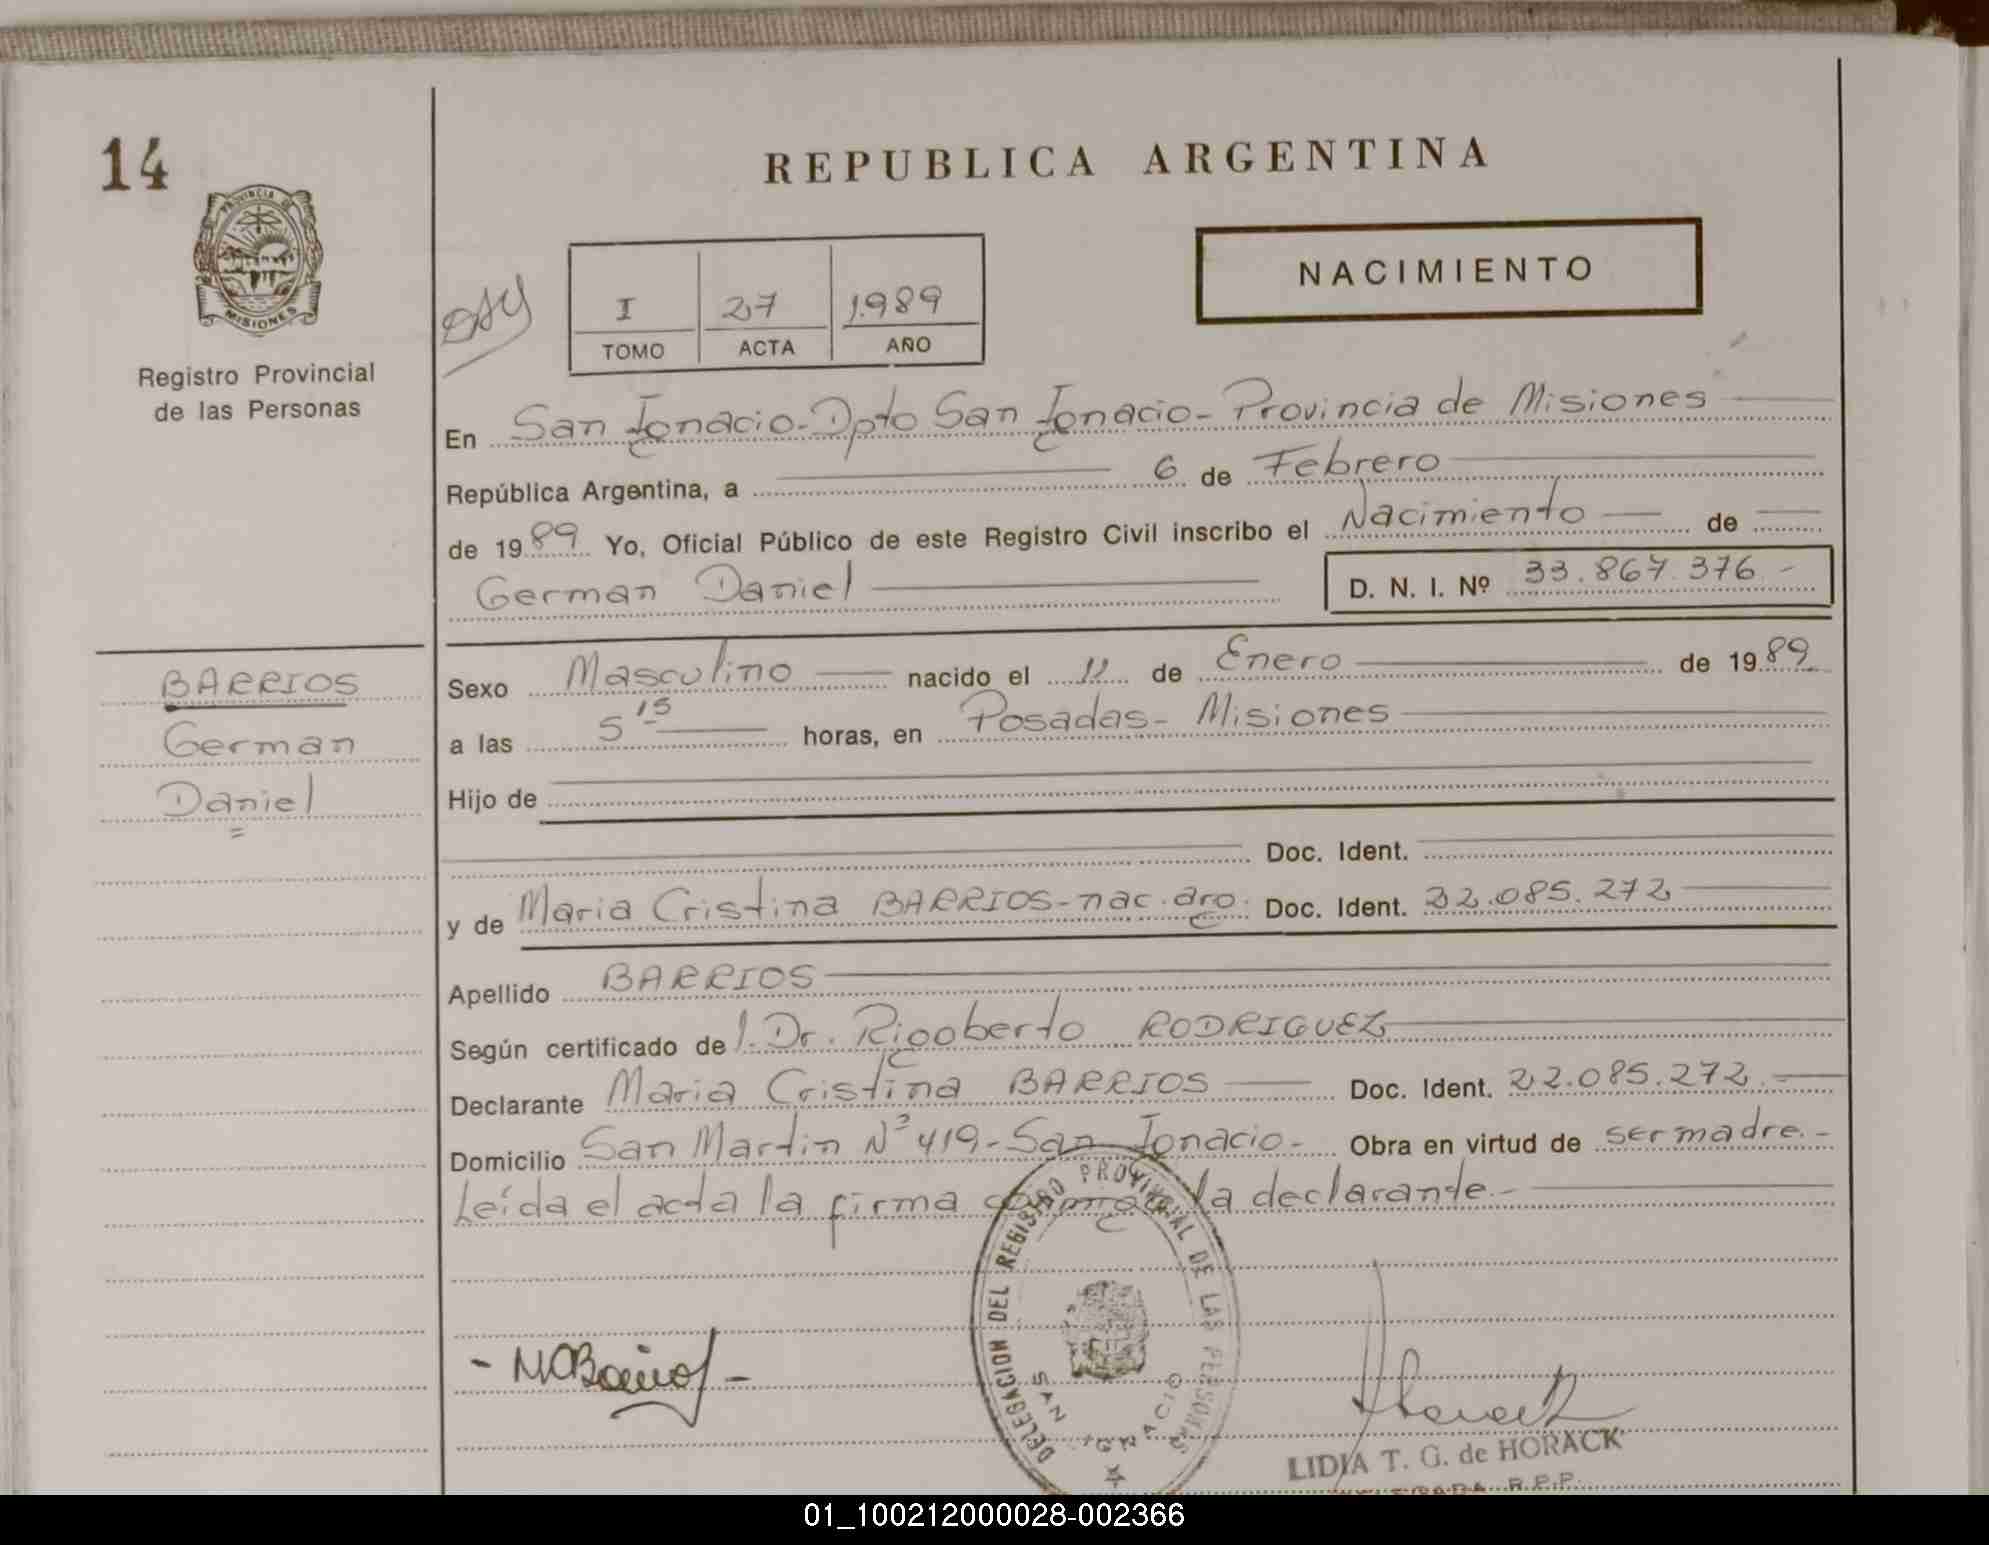 14
REPUBLICA ARGENTINA
PROVINCIA DE
MISIONES
NACIMIENTO
I 27 1.989
TOMO ACTA AÑO
Registro Provincial
de las Personas
En San Ignacio-Dpto San Ignacio-Provincia de Misiones
República Argentina, a 6 de Febrero
de 1989 Yo, Oficial Público de este Registro Civil inscribo el Nacimiento de
German Daniel D. N. I. Nº 33.867.376-
BARRIOS
German
Daniel
Sexo Masculino nacido el 11 de Enero de 1989
a las 5 15 horas, en Posadas- Misiones
Hijo de
Doc. Ident.
y de Maria Cristina BARRIOS-nac.arg. Doc. Ident. 22.085.272
Apellido BARRIOS
Según certificado de l. Dr. Rigoberto RODRIGUEZ
Declarante Maria Cristina BARRIOS Doc. Ident. 22.085.272.-
Domicilio San Martin Nº 419-San Ignacio- Obra en virtud de ser madre.-
Leída el acta la firma conmigo la declarante.-
DELEGACION DEL REGISTRO PROVINCIAL DE LAS PERSONAS
SAN IGNACIO
LIDIA T. G. de HORACK
R.P.P.
01_100212000028-002366